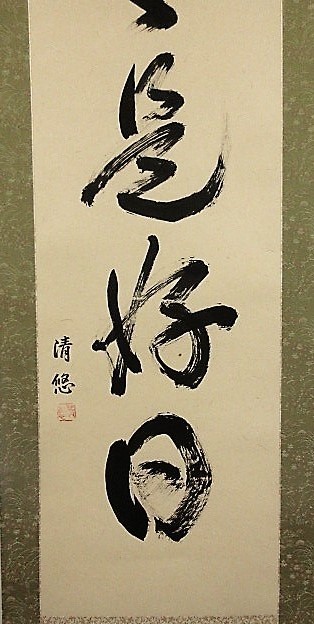 是好日
清悠